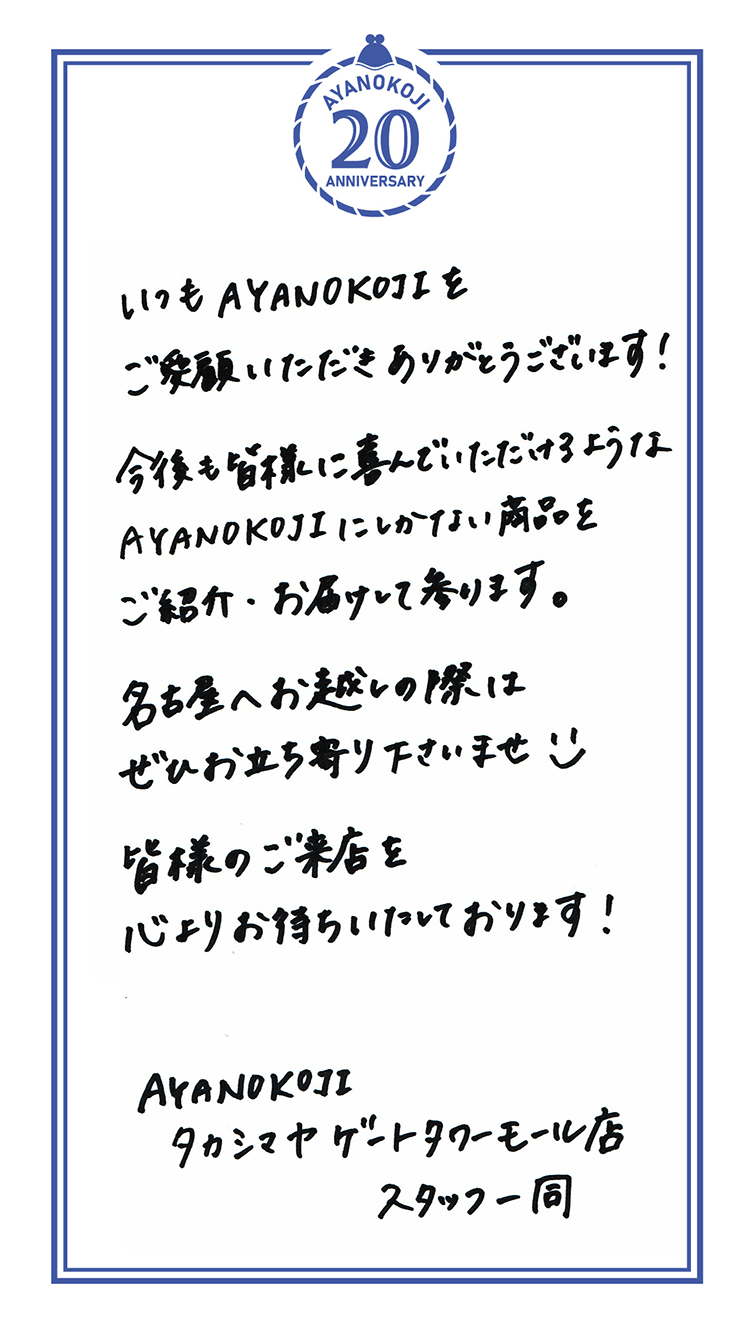 AYANOKOJI
20
ANNIVERSARY
いつもAYANOKOJIを
ご愛顧いただきありがとうございます！
今後も皆様に喜んでいただけるような
AYANOKOJIにしかない商品を
ご紹介・お届けして参ります。
名古屋へお越しの際は
ぜひお立ち寄り下さいませ
皆様のご来店を
心よりお待ちいたしております！
AYANOKOJI
タカシマヤ ゲートタワーモール店
スタッフ一同